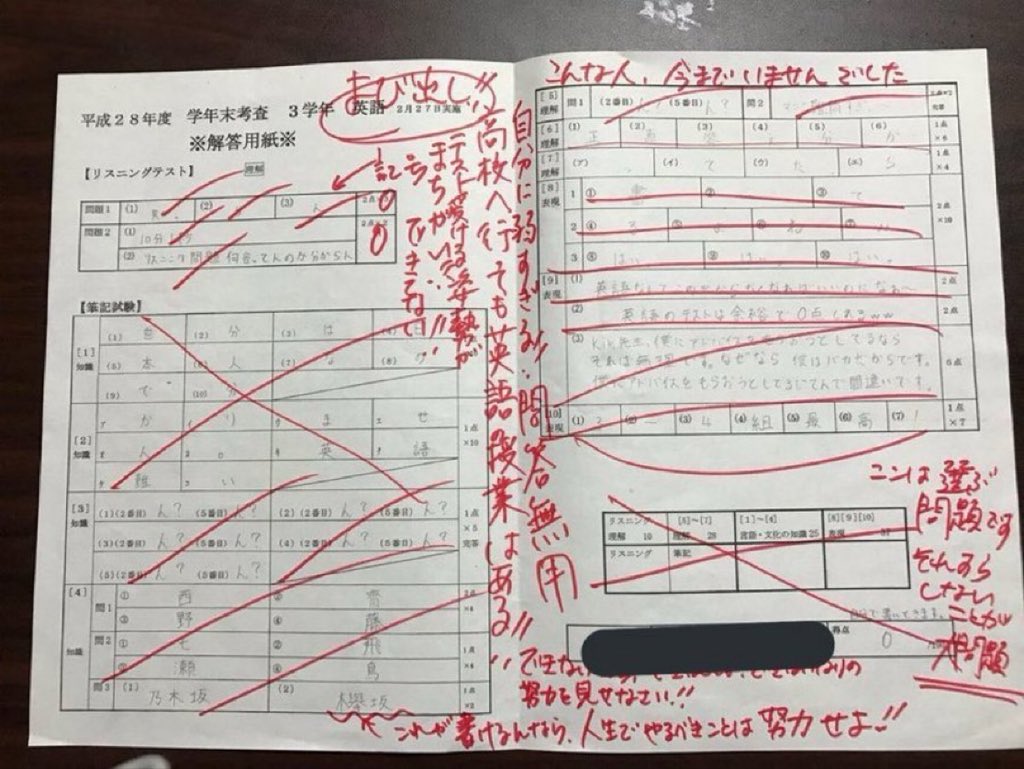 平成28年度 学年末考査 3学年 英語 2月27日実施
よび出し!!
※解答用紙※
【リスニングテスト】
理解
問題1 (1) (2) (3) ん 2点
問題2 (1) 10分
(2) リスニング問題 何言ってんのか分からん
0
0
記号
テスト受ける姿勢が
まちがいで…
できてねぇ!!
高校へ行っても英語授業はある!!
自分に弱すぎる!! 問答無用
【筆記試験】
[1] 知識
(1) (2) 分 (3) は (4) 日
(5) 本 (6) 人 (7) な (8) の
(9) で (10)
[2] 知識
ア か イ り ウ ま エ せ
オ ん カ 。 キ 英 ク 語
ケ 難 コ い
1点×10
[3] 知識
(1)(2番目) ん? (5番目) ん? (2)(2番目) ん? (5番目) ん?
(3)(2番目) ん? (5番目) ん? (4)(2番目) ん? (5番目) ん?
(5)(2番目) ん? (5番目) ん?
1点×5 完答
[4] 知識
問1 ① 西 ② 齊
③ 野 ④ 藤
2点×4
問2 ① 七 ② 飛
③ 瀬 ④ 鳥
1点×4
問3 (1) 乃木坂 (2) 欅坂
1点×2
これが書けるんなら、人生でやるべきことは努力せよ!!
こんな人、今までいませんでした
[5] 理解 問1 (2番目) ん? (5番目) ん? 問2
完答
[6] 理解 (1) (2) (3) (4) (5) (6) か
1点×6
[7] 理解 (ア) (イ) て (ウ) た (エ) ら
1点×4
[8] 表現
1 ① ② ③ て
2 ④ ⑤ ⑥ ね ⑦
3 ⑧ はい。 ⑨ はい。 ⑩ はい。
2点×10
[9] 表現
(1) 英語なんてこの世からなくなればいいのになぁ〜
2点
(2) 英語のテストは余裕で0点とれるww
2点
(3) 先生、僕にアドバイスをもらおうとしてるなら
それは無理です。なぜなら 僕はバカだからです。
僕にアドバイスをもらおうとしてるじてんで間違いです。
6点
[10] 表現 (1) 3 (2) ー (3) 4 (4) 組 (5) 最 (6) 高 (7) !
1点×7
ここは選ぶ
問題です
それすら
しない
ことが
大問題
リスニング 理解 10 [5]〜[7] 理解 28 [1]〜[4] 言語・文化の知識 25 [8][9][10] 表現 37
リスニング 筆記
得点 0
できない
努力を見せなさい!!